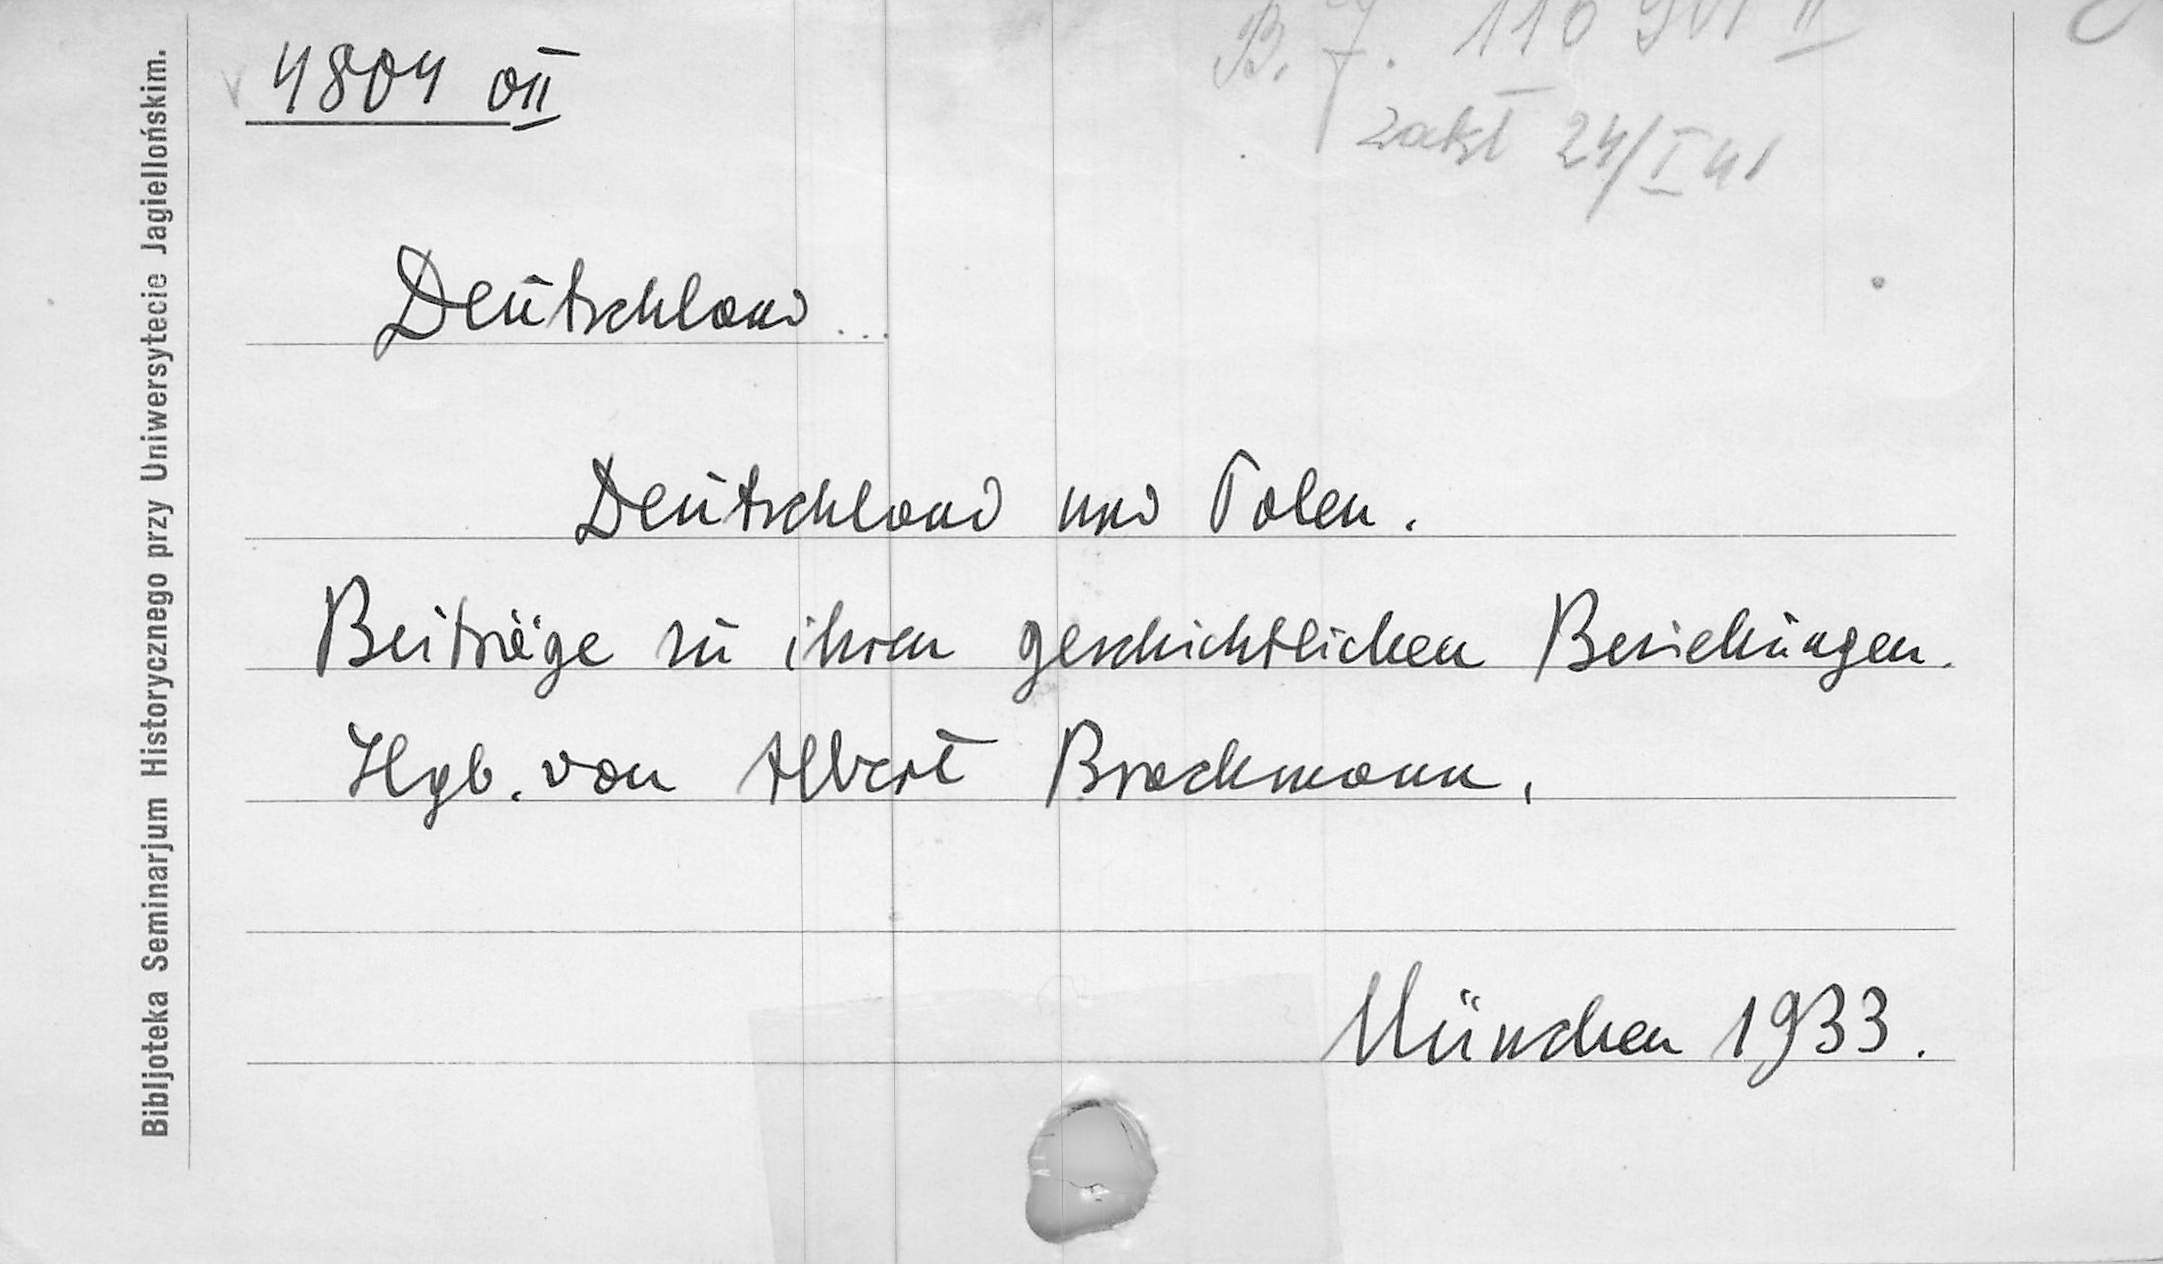 4804 OII
B. J. 110 901 II
zakł 24/I 41
Deutschland...
Deutschland und Polen.
Beiträge zu ihren geschichtlichen Beziehungen.
Hgb. von Albert Brackmann.
München 1933.
Bibljoteka Seminarjum Historycznego przy Uniwersytecie Jagiellońskim.